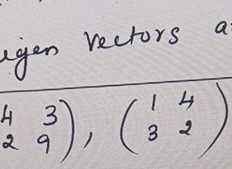 eigen vectors a
4 3
2 9 ), ( 1 4
3 2 )